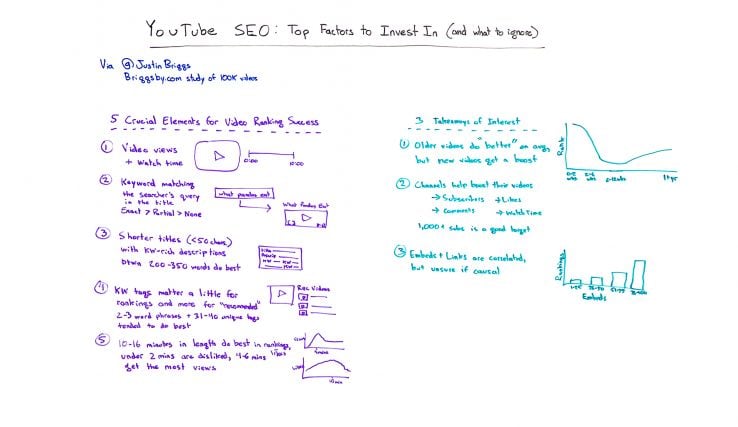 YouTube SEO: Top Factors to Invest In (and what to ignore)
Via @Justin Briggs
Briggsby.com study of 100K videos
5 Crucial Elements for Video Ranking Success
1 Video views
+ Watch time
0:00 10:00
2 Keyword matching
the searcher's query
in the title
Exact > Partial > None
what pandas eat
What Pandas Eat
3 Shorter titles (<50 chars)
with KW-rich descriptions
btwn 200-350 words do best
4 KW tags matter a little for
rankings and more for "recommended"
2-3 word phrases + 31-40 unique tags
tended to do best
Rec Videos
5 10-16 minutes in length do best in rankings,
under 2 mins are disliked, 4-6 mins
get the most views
3 Takeaways of Interest
1 Older videos do "better" on avg,
but new videos get a boost
Rank
1+ yr
2 Channels help boost their videos
→ Subscribers → Likes
→ Comments → Watch Time
1,000+ subs is a good target
3 Embeds + Links are correlated,
but unsure if causal
Rankings
Embeds